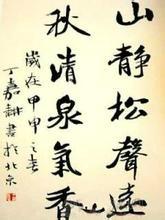 山静松聲遠
秋清泉氣香
歲在甲申之春
丁嘉耕書於北京